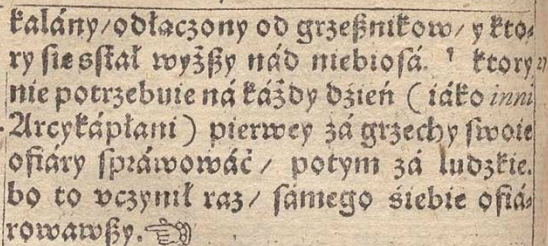 kalány/ odłączony od grzeßnikow/ y kto-
ry sie sstał wyżßy nád niebiosá. ' ktory 27
nie potrzebuie ná káżdy dzień ( iáko inni
Arcykápłani ) pierwey zá grzechy swoie
ofiáry spráwowáć / potym zá ludzkie.
bo to vczynił raz/ sámego siebie ofiá-
rowawßy. ☜